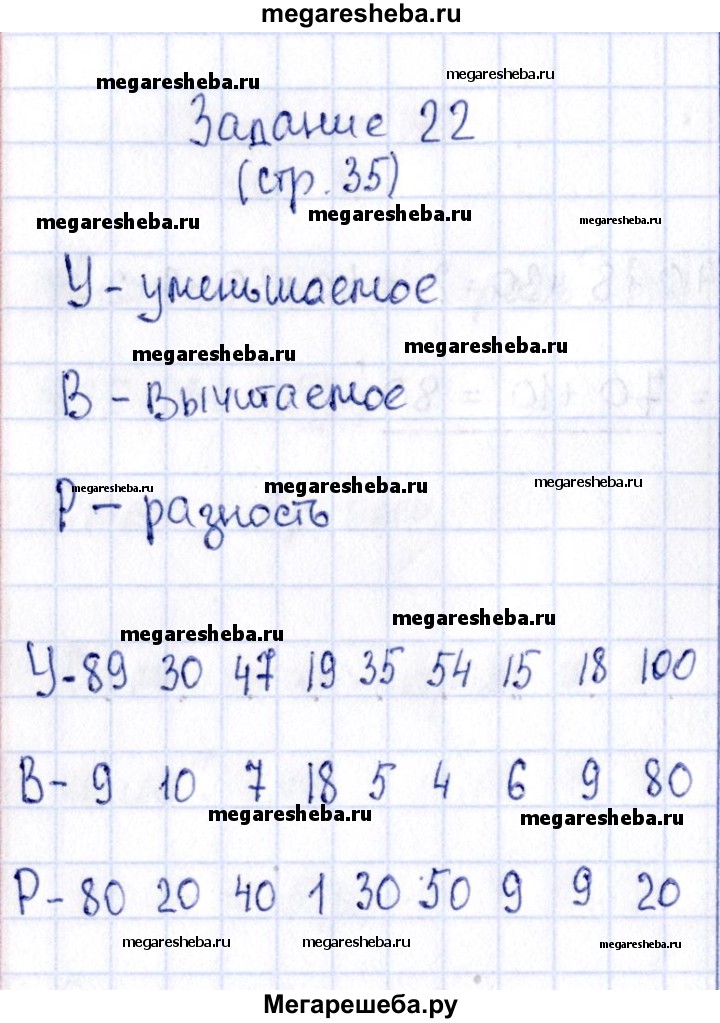 megaresheba.ru
megaresheba.ru megaresheba.ru
Задание 22
(стр. 35)
megaresheba.ru megaresheba.ru megaresheba.ru
У - уменьшаемое
megaresheba.ru megaresheba.ru
В - вычитаемое
megaresheba.ru megaresheba.ru megaresheba.ru
Р - разность
megaresheba.ru megaresheba.ru
У - 89 30 47 19 35 54 15 18 100
В - 9 10 7 18 5 4 6 9 80
megaresheba.ru megaresheba.ru
Р - 80 20 40 1 30 50 9 9 20
megaresheba.ru megaresheba.ru megaresheba.ru
Мегарешеба.ру